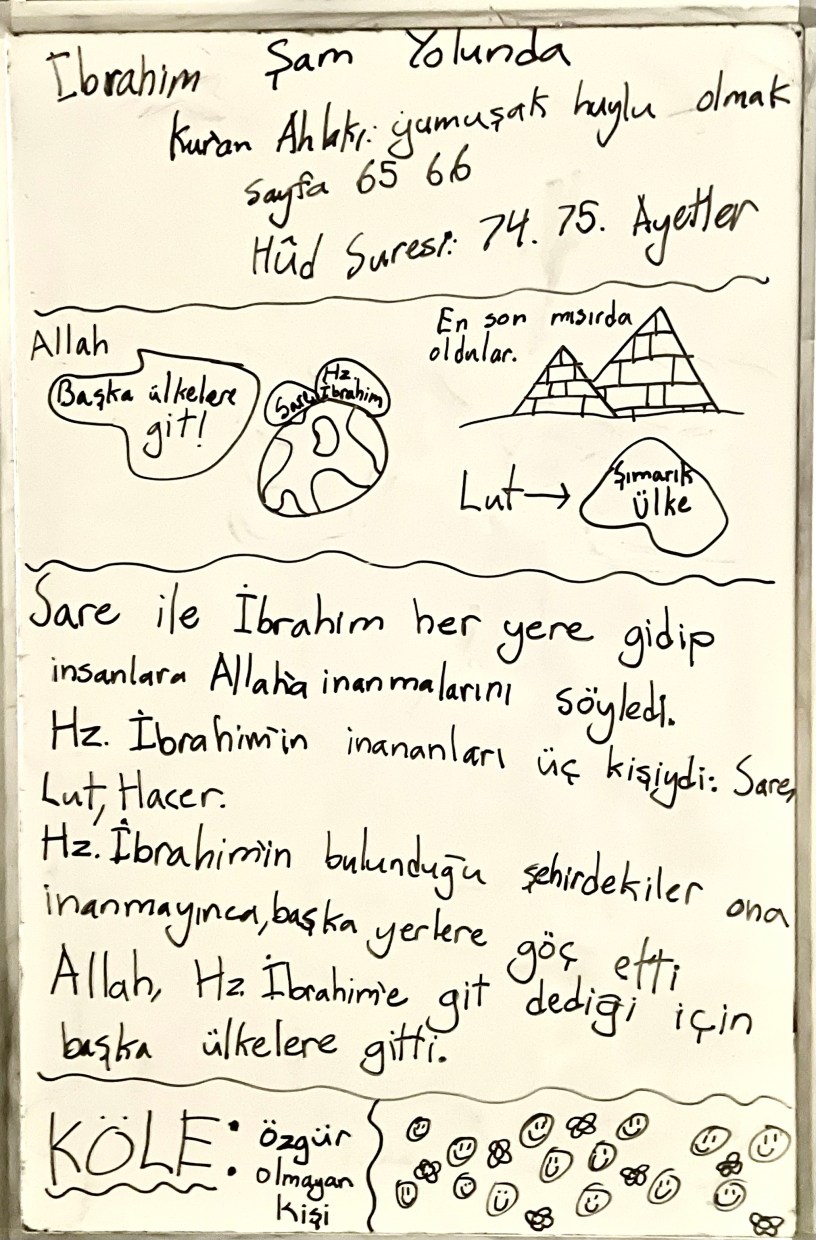 İbrahim Şam Yolunda
Kur'an Ahlakı: yumuşak huylu olmak
sayfa 65 66
Hûd Suresi: 74. 75. Ayetler
Allah
Başka ülkelere
git!
Sare
Hz.
İbrahim
En son mısırda
oldular.
Lut→
Şımarık
ülke
Sare ile İbrahim her yere gidip
insanlara Allah'a inanmalarını söyledi.
Hz. İbrahim'in inananları üç kişiydi: Sare,
Lut, Hacer.
Hz. İbrahim'in bulunduğu şehirdekiler ona
inanmayınca, başka yerlere göç etti
Allah, Hz. İbrahim'e git dediği için
başka ülkelere gitti.
KÖLE: özgür
olmayan
kişi